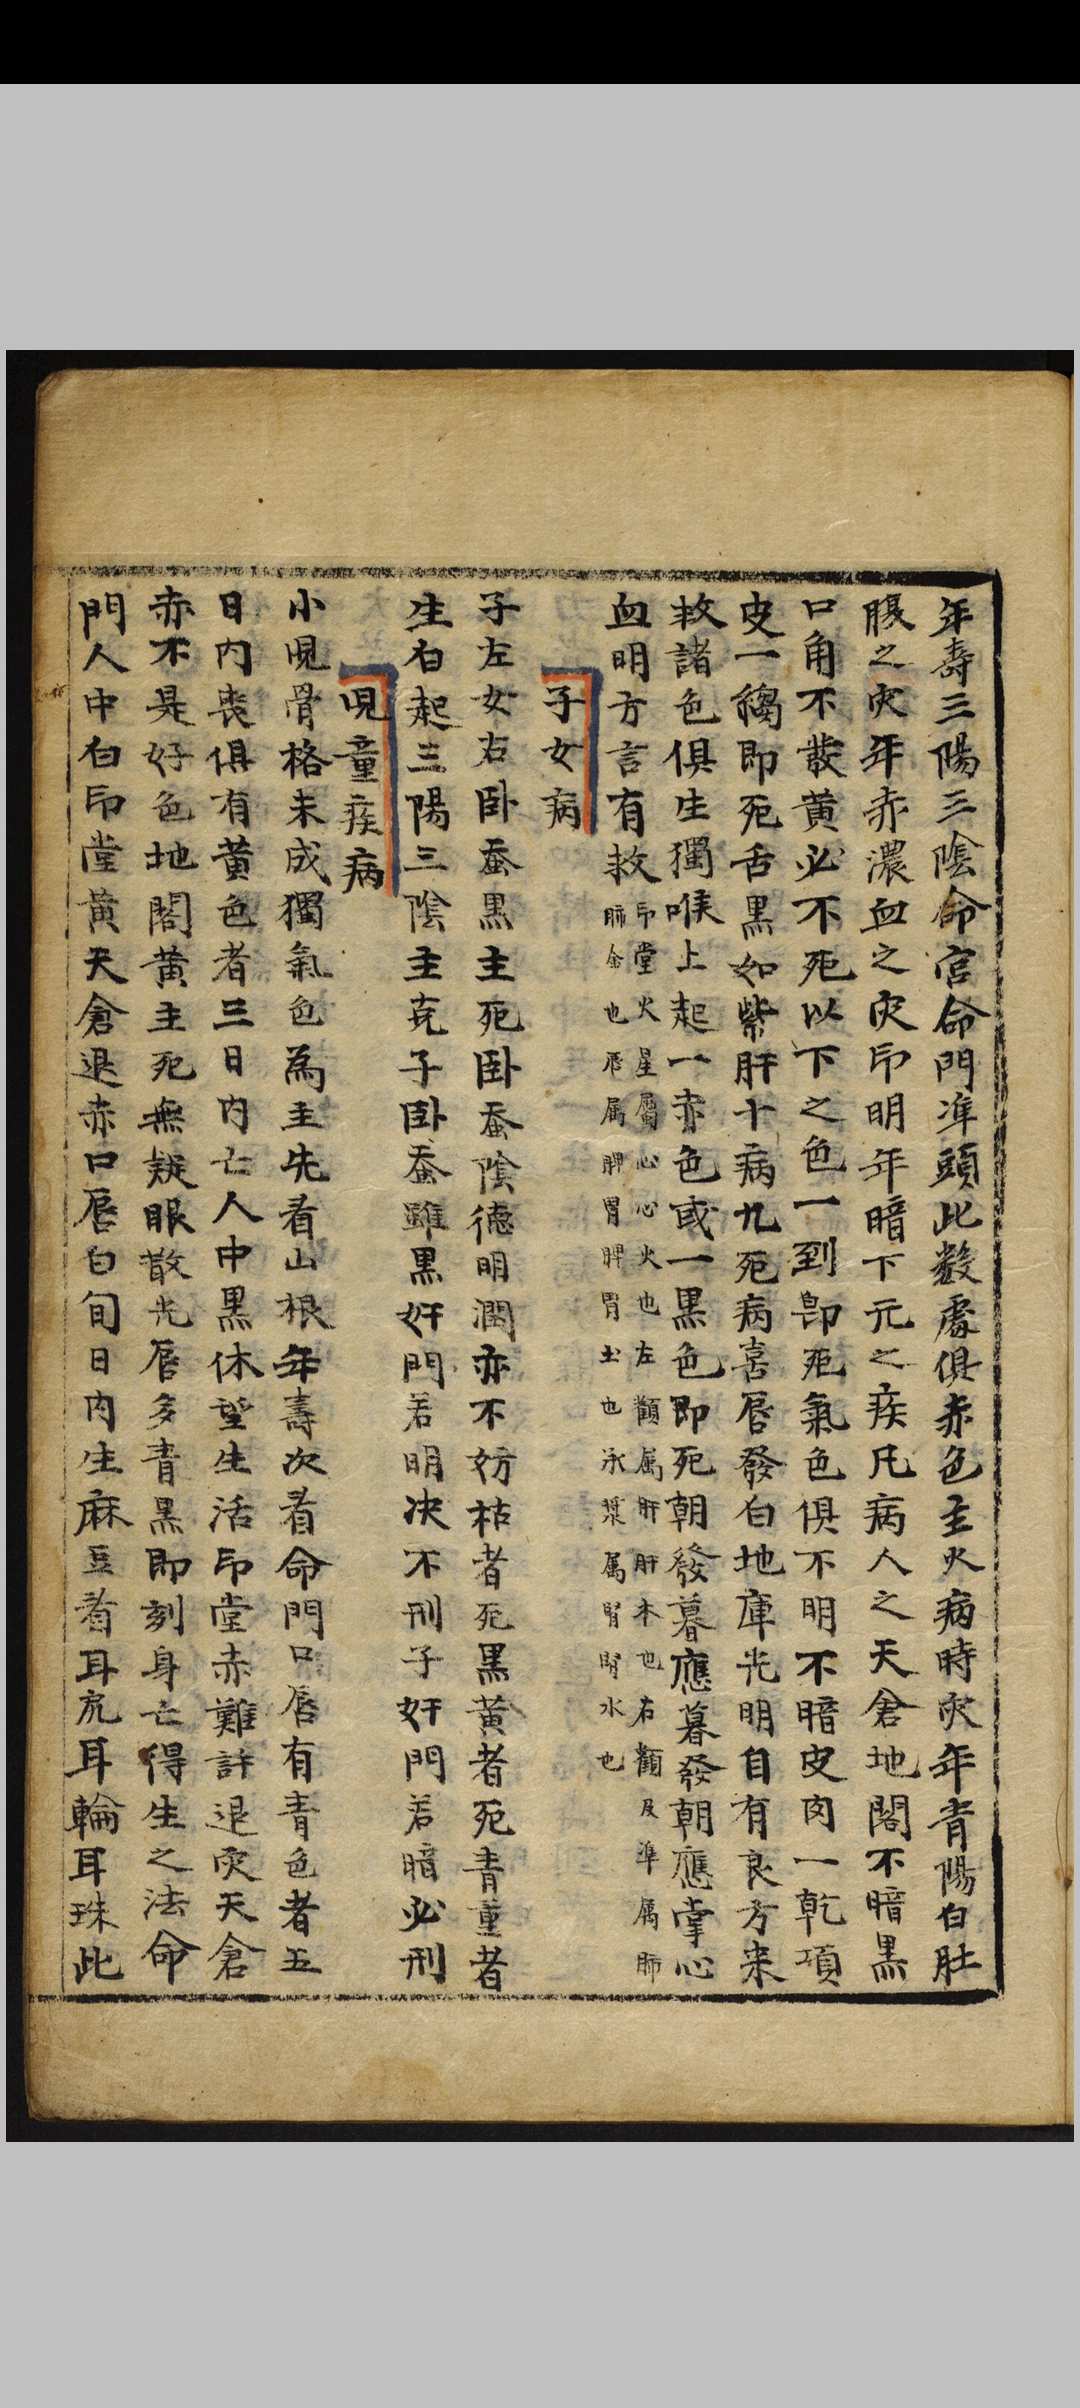 年壽三陽三陰命宮命門準頭此數處俱赤色主火病時灾年青陽白肚
腹之灾年赤濃血之灾印明年暗下元之疾凡病人之天倉地閣不暗黑
口角不散黄必不死以下之色一到卽死氣色俱不明不暗皮肉一乾項
皮一縐即死舌黑如紫肝十病九死病喜唇發白地庫光明自有良方来
救諸色俱生獨喉上起一赤色或一黒色即死朝發暮應暮發朝應掌心
血明方言有救
印堂火星屬心心火也左顴属肝肝木也右顴及準属肺
肺金也唇属脾胃脾胃土也承漿属腎腎水也
子女病
子左女右卧蚕黒主死卧蚕陰德明潤亦不妨枯者死黒黄者死青重者
生白起三陽三陰主克子卧蚕雖黒奸門若明决不刑子奸門若暗必刑
児童疾病
小児骨格未成獨氣色為主先看山根年壽次看命門口唇有青色者五
日内喪俱有黄色者三日内亡人中黒休望生活印堂赤難許退灾天倉
赤不是好色地閣黄主死無疑眼散光唇多青黒即刻身亡得生之法命
門人中白印堂黄天倉退赤口唇白旬日内生麻豆看耳尻耳輪耳珠此